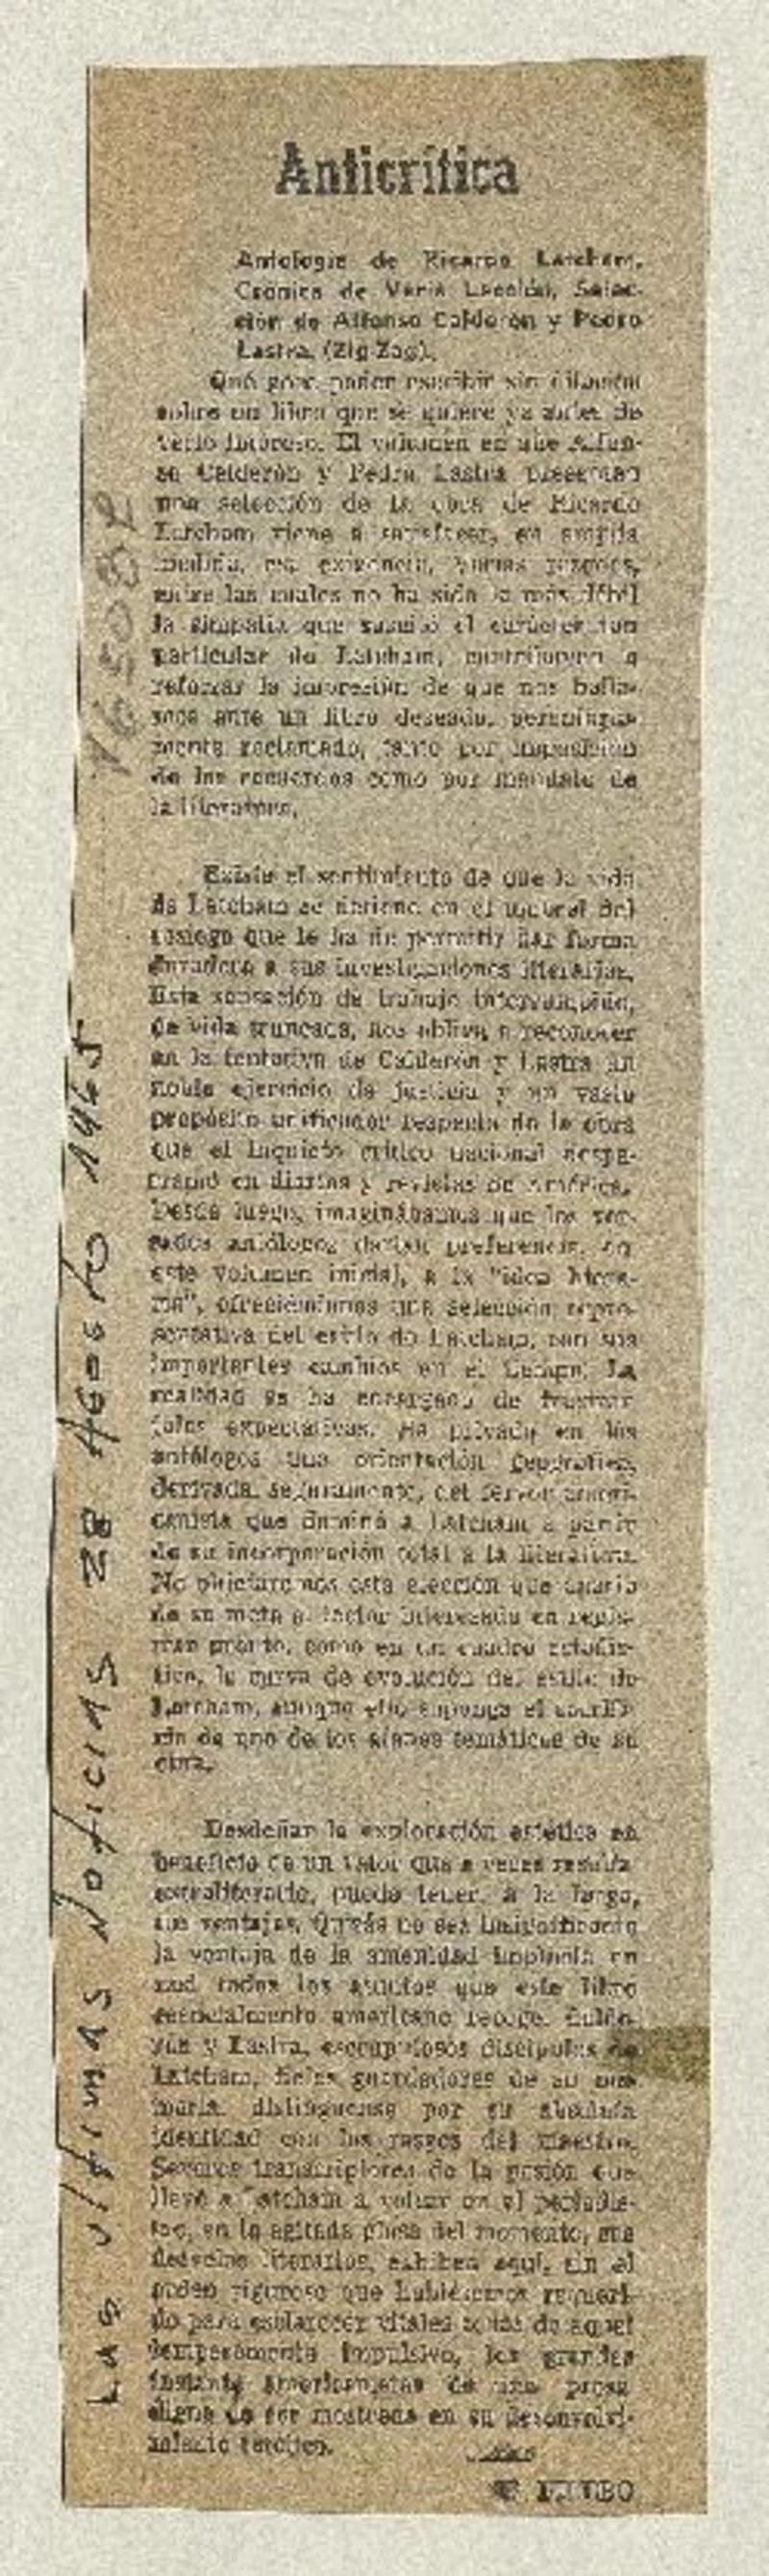 Anticrítica
Antología de Ricardo Latcham.
Crónica de Varia Lección. Selec-
ción de Alfonso Calderón y Pedro
Lastra. (Zig-Zag).
Qué gozo poder escribir sin dilación
sobre un libro que se quiere ya antes de
verlo impreso. El volumen en que Alfon-
so Calderón y Pedro Lastra presentan
una selección de la obra de Ricardo
Latcham viene a satisfacer, en amplia
medida, esa exigencia. Varias razones,
entre las cuales no ha sido la más débil
la simpatía que suscitó el carácter tan
particular de Latcham, contribuyen a
reforzar la impresión de que nos halla-
mos ante un libro deseado,
mente reclamado, tanto por imposición
de los recuerdos como por mandato de
la literatura.
Existe el sentimiento de que la vida
de Latcham se detiene en el umbral del
sosiego que le ha de permitir dar forma
duradera a sus investigaciones literarias.
Esta sensación de trabajo interrumpido,
de vida truncada, nos obliga a reconocer
en la tentativa de Calderón y Lastra un
noble ejercicio de justicia y un vasto
propósito unificador respecto de la obra
que el inquieto crítico nacional despa-
rramó en diarios y revistas de América.
Desde luego, imaginábamos que los
antólogos darían preferencia, en
este volumen inicial, a la "idea
ma", ofreciéndonos una selección repre-
sentativa del estilo de Latcham, con sus
importantes cambios en el tiempo. La
realidad se ha encargado de frustrar
tales expectativas. Ha privado en los
antólogos una orientación geográfica,
derivada, seguramente, del fervor ameri-
canista que dominó a Latcham a partir
de su incorporación total a la literatura.
No objetaremos esta elección que aparta
de su meta al lector interesado en regis-
trar pronto, como en un cuadro estadís-
tico, la curva de evolución del estilo de
Latcham, aunque ello suponga el sacrifi-
cio de uno de los planes temáticos de su
obra.
Desdeñar la exploración estética en
beneficio de un valor que a veces resulta
extraliterario, puede tener, a la larga,
sus ventajas. Quizás no sea insignificante
la ventaja de la amenidad implícita en
casi todos los asuntos que este libro
esencialmente americano recoge. Calde-
rón y Lastra, escrupulosos discípulos de
Latcham, fieles guardadores de su me-
moria, distínguense por su absoluta
identidad con los rasgos del maestro.
Severos transcriptores de la pasión que
llevó a Latcham a volcar en el periodis-
mo, en la agitada plaza del momento, sus
desvelos literarios, exhiben aquí, sin el
orden riguroso que hubiésemos requeri-
do para esclarecer vitales zonas de aquel
temperamento impulsivo, los grandes
instantes americanistas de una prosa
digna de ser mostrada en su desenvolvi-
miento
Las últimas Noticias 28 Agosto 1965